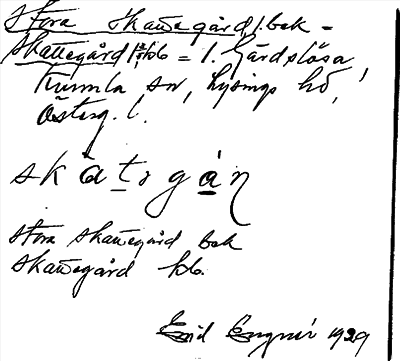 Stora Skattegård, l. bek =
Skattegård l. hb = 1. Gärdslösa,
Kumla sn, Lysings hd,
Österg. l.
skatrgán
Stora Skattegård bek
Skattegård hb.
Enid Engner 1929